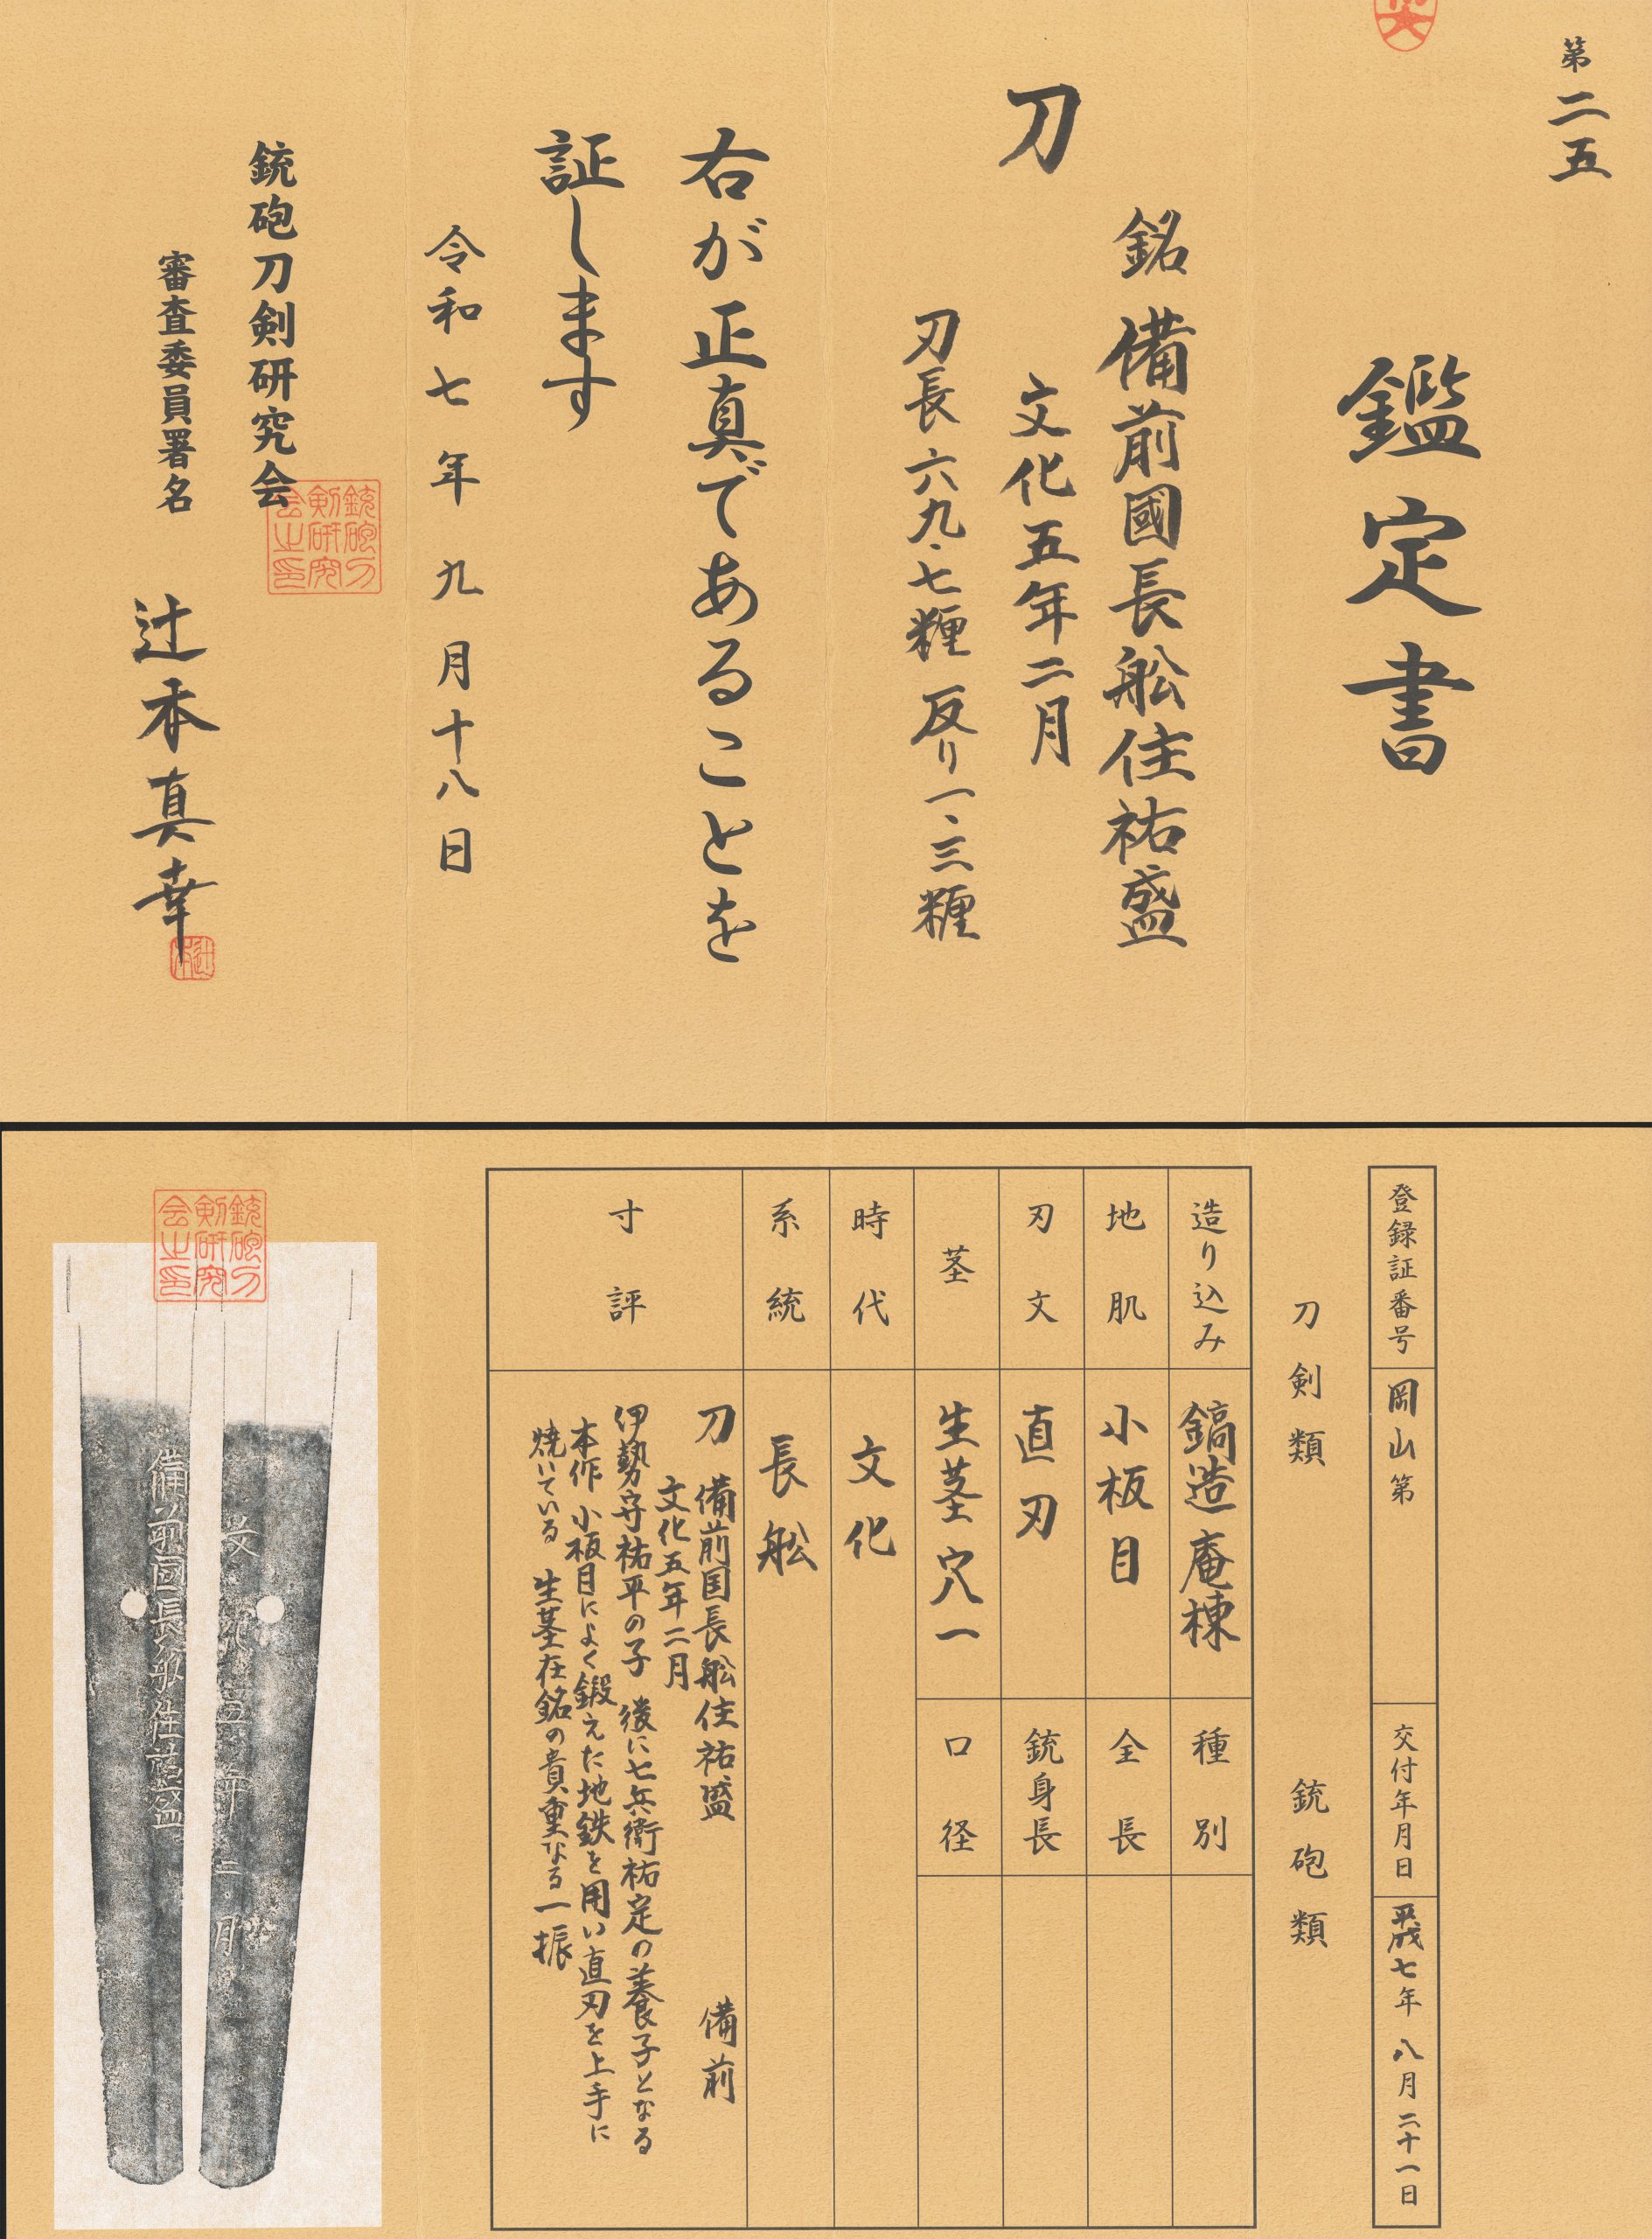 第二五
鑑定書
刀
銘 備前國長舩住祐盛
文化五年二月
刃長 六九・七糎 反り一、三糎
右が正真であることを
証します
令和七年九月十八日
銃砲刀剣研究会
銃砲刀
剣研究
会之印
審査委員署名
辻本真幸
登録証番号
岡山第
交付年月日
平成七年 八月 二十一日
刀剣類
銃砲類
造り込み
鎬造 庵棟
種別
地肌
小板目
全長
刃文
直刃
銃身長
茎
生茎 穴一
口径
時代
文化
系統
長舩
寸評
刀 備前国長舩住祐盛 備前
文化五年二月
伊勢守祐平の子 後に七兵衛祐定の養子となる
本作 小板目によく鍛えた地鉄を用い直刃を上手に
焼いている 生茎在銘の貴重なる一振
銃砲刀
剣研究
会之印
文化五年二月
備前国長舩住祐盛